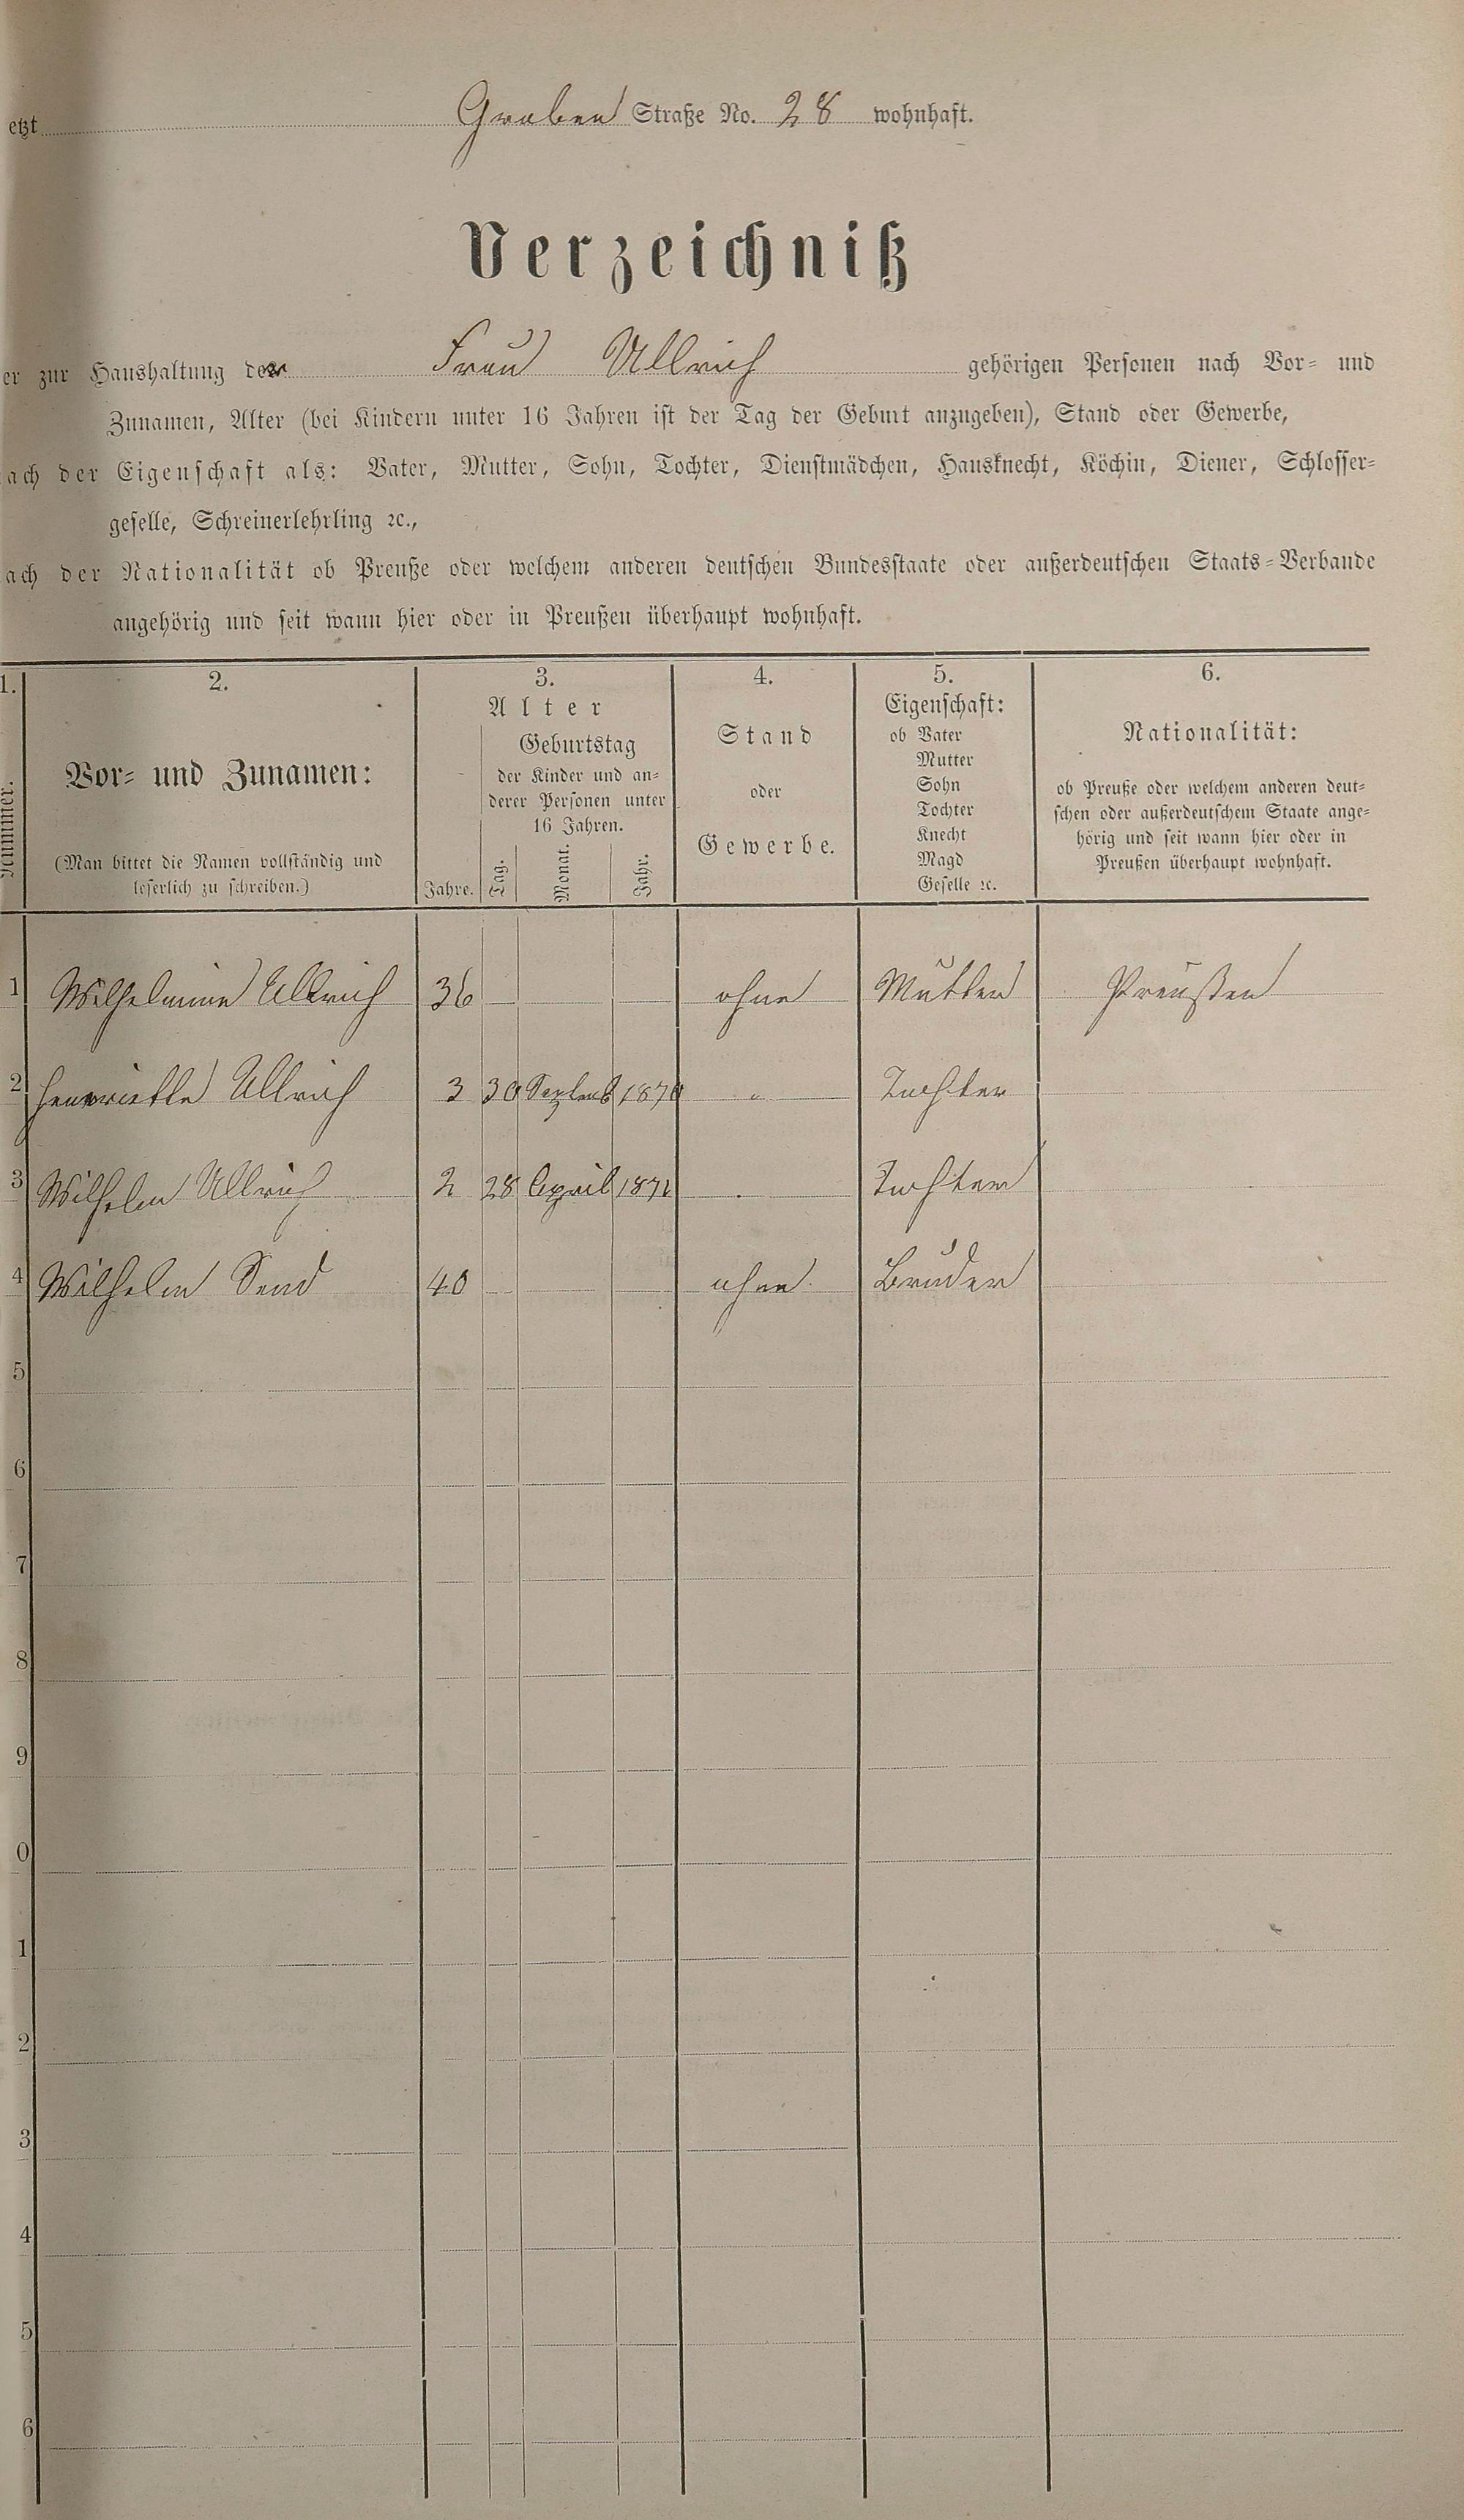 etzt Graben Straße No. 28 wohnhaft.
Verzeichniß
er zur Haushaltung der Frau Ullrich gehörigen Personen nach Vor- und
Zunamen, Alter (bei Kindern unter 16 Jahren ist der Tag der Geburt anzugeben), Stand oder Gewerbe,
ach der Eigenschaft als: Vater, Mutter, Sohn, Tochter, Dienstmädchen, Hausknecht, Köchin, Diener, Schlosser-
geselle, Schreinerlehrling ꝛc.,
ach der Nationalität ob Preuße oder welchem anderen deutschen Bundesstaate oder außerdeutschen Staats-Verbande
angehörig und seit wann hier oder in Preußen überhaupt wohnhaft.
1. 2. 3. 4. 5. 6.
Nummer.
Vor- und Zunamen:
(Man bittet die Namen vollständig und
leserlich zu schreiben.)
Alter
Geburtstag
der Kinder und an-
derer Personen unter
16 Jahren.
Jahre. Tag. Monat. Jahr.
Stand
oder
Gewerbe.
Eigenschaft:
ob Vater
Mutter
Sohn
Tochter
Knecht
Magd
Geselle ꝛc.
Nationalität:
ob Preuße oder welchem anderen deut-
schen oder außerdeutschem Staate ange-
hörig und seit wann hier oder in
Preußen überhaupt wohnhaft.
1 Wilhelmine Ullrich 36 ohne Mutter Preußen
2 Henrriette Ullrich 3 30 Septemb 1870 " Tochter
3 Wilhelm Ullrich 2 28 April 1871 Tochter
4 Wilhelm Send 40 ohne Bruder
5
6
7
8
9
0
1
2
3
4
5
6